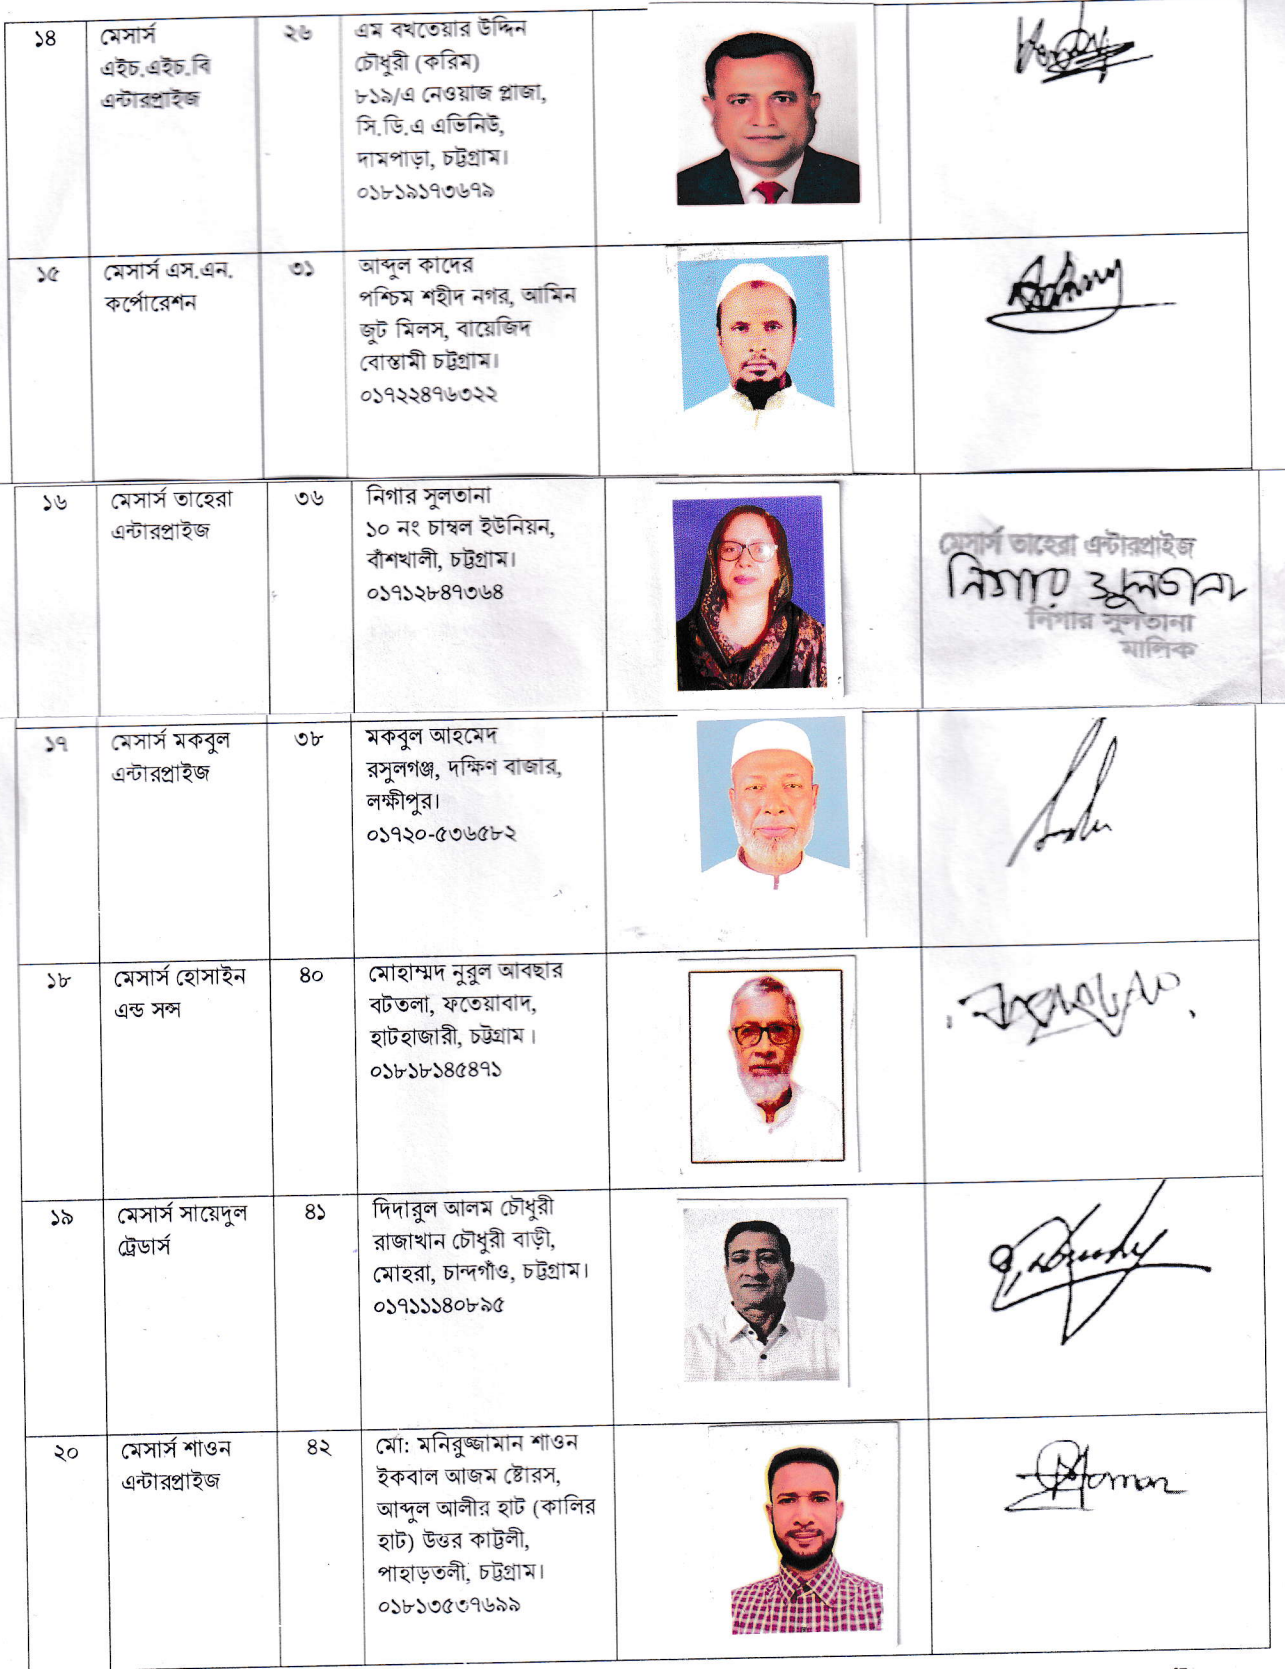 ১৪
মেসার্স
এইচ.এইচ.বি
এন্টারপ্রাইজ
২৬
এম বখতেয়ার উদ্দিন
চৌধুরী (করিম)
৮১৯/এ নেওয়াজ প্লাজা,
সি.ডি.এ এভিনিউ,
দামপাড়া, চট্টগ্রাম।
০১৮১৯১৭৩৬৭৯
১৫
মেসার্স এস.এন.
কর্পোরেশন
৩১
আব্দুল কাদের
পশ্চিম শহীদ নগর, আমিন
জুট মিলস, বায়েজিদ
বোস্তামী চট্টগ্রাম।
০১৭২২৪৭৬৩২২
১৬
মেসার্স তাহেরা
এন্টারপ্রাইজ
৩৬
নিগার সুলতানা
১০ নং চাম্বল ইউনিয়ন,
বাঁশখালী, চট্টগ্রাম।
০১৭১২৮৪৭৩৬৪
মেসার্স তাহেরা এন্টারপ্রাইজ
নিগার সুলতানা
নিগার সুলতানা
মালিক
১৭
মেসার্স মকবুল
এন্টারপ্রাইজ
৩৮
মকবুল আহমেদ
রসুলগঞ্জ, দক্ষিণ বাজার,
লক্ষীপুর।
০১৭২০-৫৩৬৫৮২
১৮
মেসার্স হোসাইন
এন্ড সন্স
৪০
মোহাম্মদ নুরুল আবছার
বটতলা, ফতেয়াবাদ,
হাটহাজারী, চট্টগ্রাম ।
০১৮১৮১৪৫৪৭১
১৯
মেসার্স সায়েদুল
ট্রেডার্স
৪১
দিদারুল আলম চৌধুরী
রাজাখান চৌধুরী বাড়ী,
মোহরা, চান্দগাঁও, চট্টগ্রাম।
০১৭১১১৪০৮৯৫
২০
মেসার্স শাওন
এন্টারপ্রাইজ
৪২
মো: মনিরুজ্জামান শাওন
ইকবাল আজম ষ্টোরস,
আব্দুল আলীর হাট (কালির
হাট) উত্তর কাট্টলী,
পাহাড়তলী, চট্টগ্রাম।
০১৮১৩৫৩৭৬৯৯